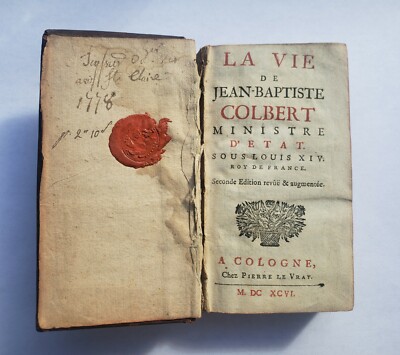 1778
LA VIE
DE
JEAN-BAPTISTE
COLBERT
MINISTRE
D'ETAT.
SOUS LOUIS XIV.
ROY DE FRANCE.
Seconde Edition revûë & augmentée.
A COLOGNE,
Chez PIERRE LE VRAY.
M. DC XCVI.